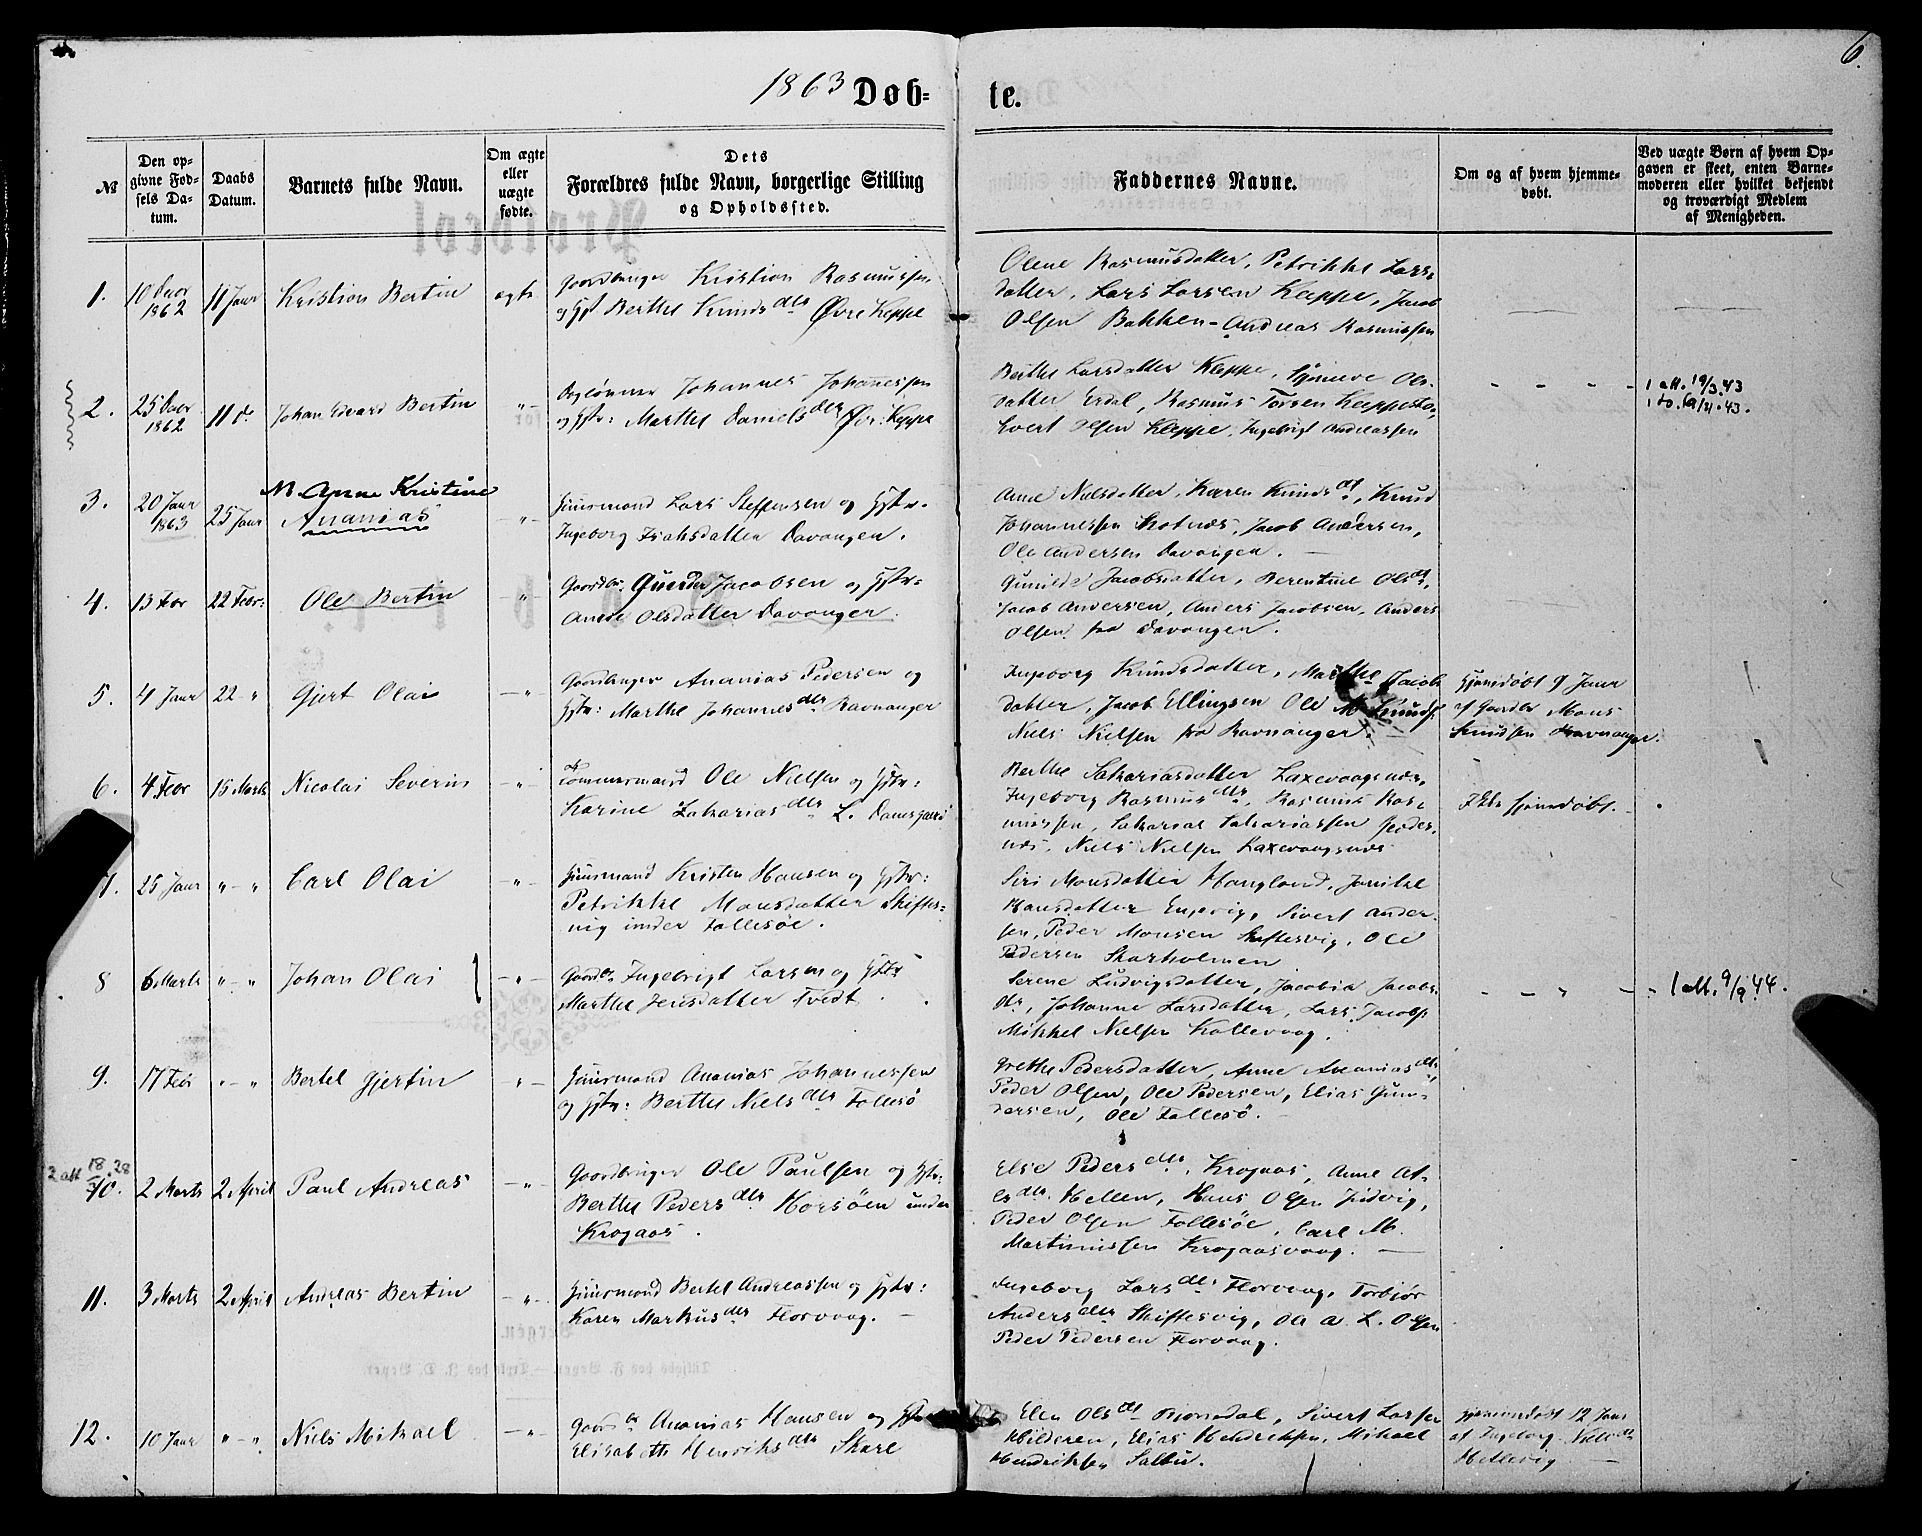 6.
1863 Døb= te.
№
Den op-
givne Fød-
sels Da-
tum.
Daabs
Datum.
Barnets fulde Navn.
Om ægte
eller
uægte
fødte.
Dets
Forældres fulde Navn, borgerlige Stilling
og Opholdssted.
Faddernes Navne.
Om og af hvem hjemme-
døbt.
Ved uægte Børn af hvem Op-
gaven er skeet, enten Barne-
moderen eller hvilket bekjendt
og troværdigt Medlem
af Menigheden.
1.
1862
11 Janr
Kristian Bertin
ægte
Gaardbruger Kristian Rasmussen
og Berthe Knudsdtr Øvre Kleppe
Olene Rasmusdatter, Petrikke Lars-
datter, Lars Larsen Kleppe, Jacob
Olsen Bakken - Andreas Rasmussen
2.
1862
11 d.
Johan Edvard Bertin
-"-
Johannes Johannessen
og Hstr: Marthe Danielsdtr Øvr: Kleppe
Berthe Larsdatter Kleppe, Ols-
datter Erdal, Rasmus
Sivert Olsen Kleppe, Ingebrigt Andreassen
1 att. 19/3.43
3.
20 Janr
1863
25 Janr
M. Anne Kristine
Ananias
-"-
Huusmand Lars Steffensen og Hstr.
Ingeborg Davangen.
Anne Nielsdatter, Karen Knudsdt, Knud
Johannessen Jacob Andersen,
Ole Andersen Davangen. —
4.
13 Febr
22 Febr:
Ole Bertin
-"-
Gaardbr. Jacobsen og Hstr:
Anne Olsdatter Davanger.
Gunilde Jacobsdatter, Berentine Olsdt,
Jacob Andersen, Anders Jacobsen, Anders
Olsen fra Davangen.
5.
4 Janr
22 - "
Gjert Olai
-"-
Gaardbruger Ananias Pedersen og
Hstr: Marthe Johannesdtr Ravnanger
Ingeborg Knudsdatter, Marthe Jacobs
datter, Jacob Ellingsen Ole
Niels Nielsen fra Ravnanger. —
Hjemdøbt 9 Janr
af Gaardbr Mons
Knudsen Ravnanger.
6.
4 Febr
15 Marts
Nicolai Severin
-"-
Tømmermand Ole Nielsen og Hstr:
Karine Zakariasdtr L. Damsgaard
Berthe Sakariasdatter Laxevaagsnæs,
Ingeborg Rasmusdtr, Rasmus Ras-
mussen, Sakarias Sakariassen
Niels Nielsen Laxevaagsnæs
hjemdøbt.
7.
25 Janr
"-"
Carl Olai
-"-
Huusmand Kristen Hansen og Hstr:
Petrikke Monsdatter Skiftes-
vig under Follesøe.
Siri Monsdatter Haugland,
Hansdatter Engevig, Sivert Ander-
sen, Peder Monsen Skiftesvig, Ole
Pedersen Skarholmen
8
6 Marts
"-"
Johan Olai
-"-
Gaardbr Ingebrigt Larsen og Hstr
Marthe Jensdatter Tvedt.
Serene Ludvigsdatter, Jacobia Jacobs-
dtr, Johanne Larsdatter, Lars Jacobs.
Mikkel Nielsen Kollevaag.
1 att. 9/9.44.
9.
17 Febr
"-"
Bertel Gjertin
"-
Huusmand Ananias Johannessen
og Hstr: Berthe Nielsdtr Follesø
Grethe Pedersdatter, Anne Ananiasdtr
Peder Olsen, Ole Pedersen, Elias Gun-
dersen, Ole Follesø.
2 att 18/ .28
10.
2 Marts
2 April
Paul Andreas
-"-
Gaardbruger Ole Paulsen og Hstr:
Berthe Pedersdtr Horsöen under
Krogaas.
Else Pedersdtr, Krogaas, Anne
Hellen, Hans Olsen
Peder Olsen Follesøe, Carl M.
Martinussen Krogaasvaag. —
11.
3 Marts
2 April
Andreas Bertin
-"-
Huusmand Bertel Andreassen og Hstr:
Karen Markusdtr Florvaag. —
Ingeborg Larsdtr Florvaag, Torbjør
Andersdtr Skiftesvig, Ole A. L. Olsen
Peder Pedersen Florvaag.
12.
10 Janr
"-"
Niels Mikael
-"-
Gaardbr Ananias Hansen og Hstr
Elisabeth Henriksdtr Skare
Elen Olsdt Sivert Larsen
Hilderen, Elias Hendriksen, Mikael
Hendriksen
Hjemmedøbt 12 Janr
af Ingeborg Nielsdtr
Hettevig —